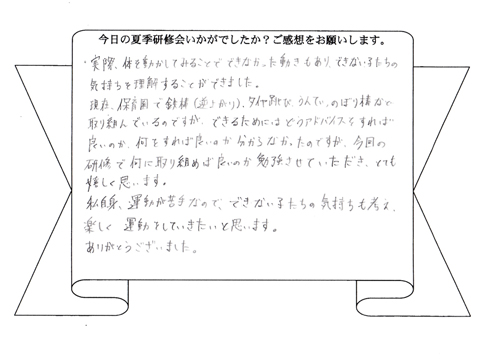 今日の夏季研修会いかがでしたか？ご感想をお願いします。
・実際、体を動かしてみることでできなかった動きもあり、できない子たちの
気持ちを理解することができました。
現在、保育園で鉄棒（逆上がり）、タイヤ跳び、うんてい、のぼり棒など
取り組んでいるのですが、できるためにはどうアドバイスをすれば
良いのか、何をすれば良いのか分からなかったのですが、今回の
研修で何に取り組めば良いのか勉強させていただき、とても
嬉しく思います。
私自身、運動が苦手なので、できない子たちの気持ちも考え、
楽しく運動をしていきたいと思います。
ありがとうございました。